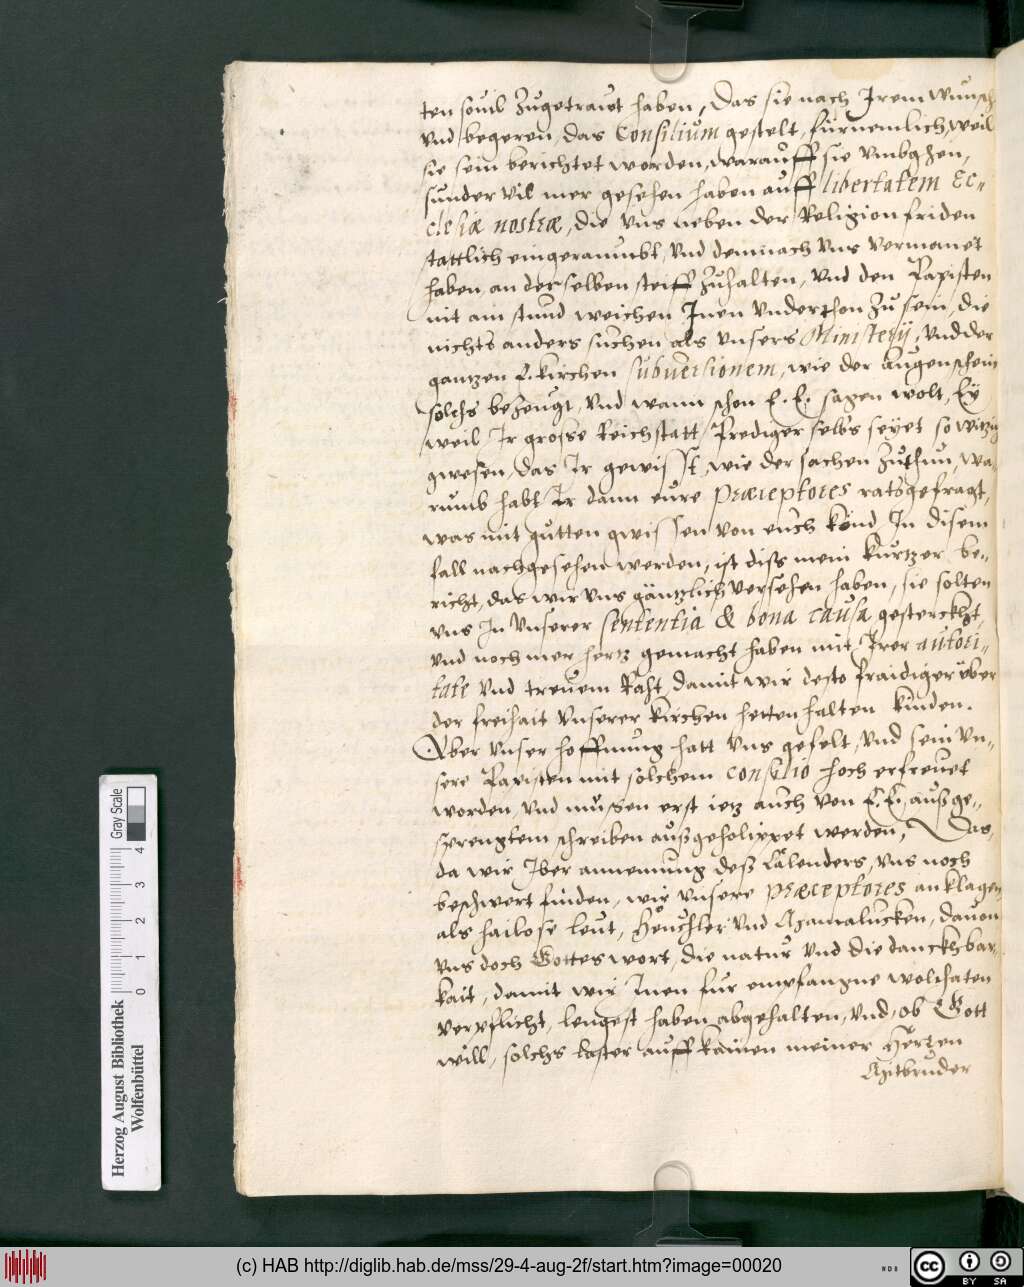 ten souil Zugetrawt haben, Das sie nach Irem wunsch
vnd begeren, das Consilium gestelt, fürnemlich, weil
sie sein berichtet worden, warauff sie vmbgehen,
sunder vil mer gesehen haben auff libertatem Ec-
clesiæ nostræ, die vns neben der Religion friden
stattlich eingeraumbt, vnd demnach vns vermanet
haben, an der selben steiff Zuhalten, vnd den Papisten
nit ain stund weichen Inen vnderthon Zu sein, die
nichts anders suchen als vnsers Ministerij, vnd der
gantzen E. Kirchen subuersionem, wie der augenschein
solchs bezeugt, vnd wann schon E. E. sagen wolt, Ey
weil Ir grosse Reichstatt Prediger selbs seyet so witzig
gwesen, das Ir gewisst, wie der sachen Zuthun, wa-
rumb habt Ir dann eure Præceptores ratsgefragt,
was mit gutten gwissen von euch könd In disem
fall nachgesehen werden, ist diss mein kurtzer be-
richt, das wir vns gäntzlich versehen haben, sie solten
vns In vnserer sententia & bona causa gesterckht,
vnd noch mer hertz gemacht haben mit Irer autori-
tate vnd trewem Raht, damit wir desto fraidiger über
der freihait vnserer Kirchen hetten halten künden.
Aber vnser hoffnung hatt vns gefelt, vnd sein vn-
sere Papisten mit solchem consilio hoch erfreuet
worden, vnd müssen erst ietz auch von E. E. außge-
sprengtem schreiben außgeholippet werden, Das,
da wir Iber annemung deß Calenders, vns noch
beschwert finden, wir vnsere præceptores anklagen
als hailose leut, Heuchler vnd Mamalucken, dauon
vns doch Gottes wort, die natur vnd die danckhbar-
kait, damit wir Inen fur empfangne wolthaten
verpflicht, lengest haben abgehalten, vnd, ob Gott
will, solchs laster auff kainen meiner Herren
Mitbruder
Herzog August Bibliothek
Wolfenbüttel
Gray Scale
0 1 2 3 4
(c) HAB http://diglib.hab.de/mss/29-4-aug-2f/start.htm?image=00020
WDB
cc BY SA